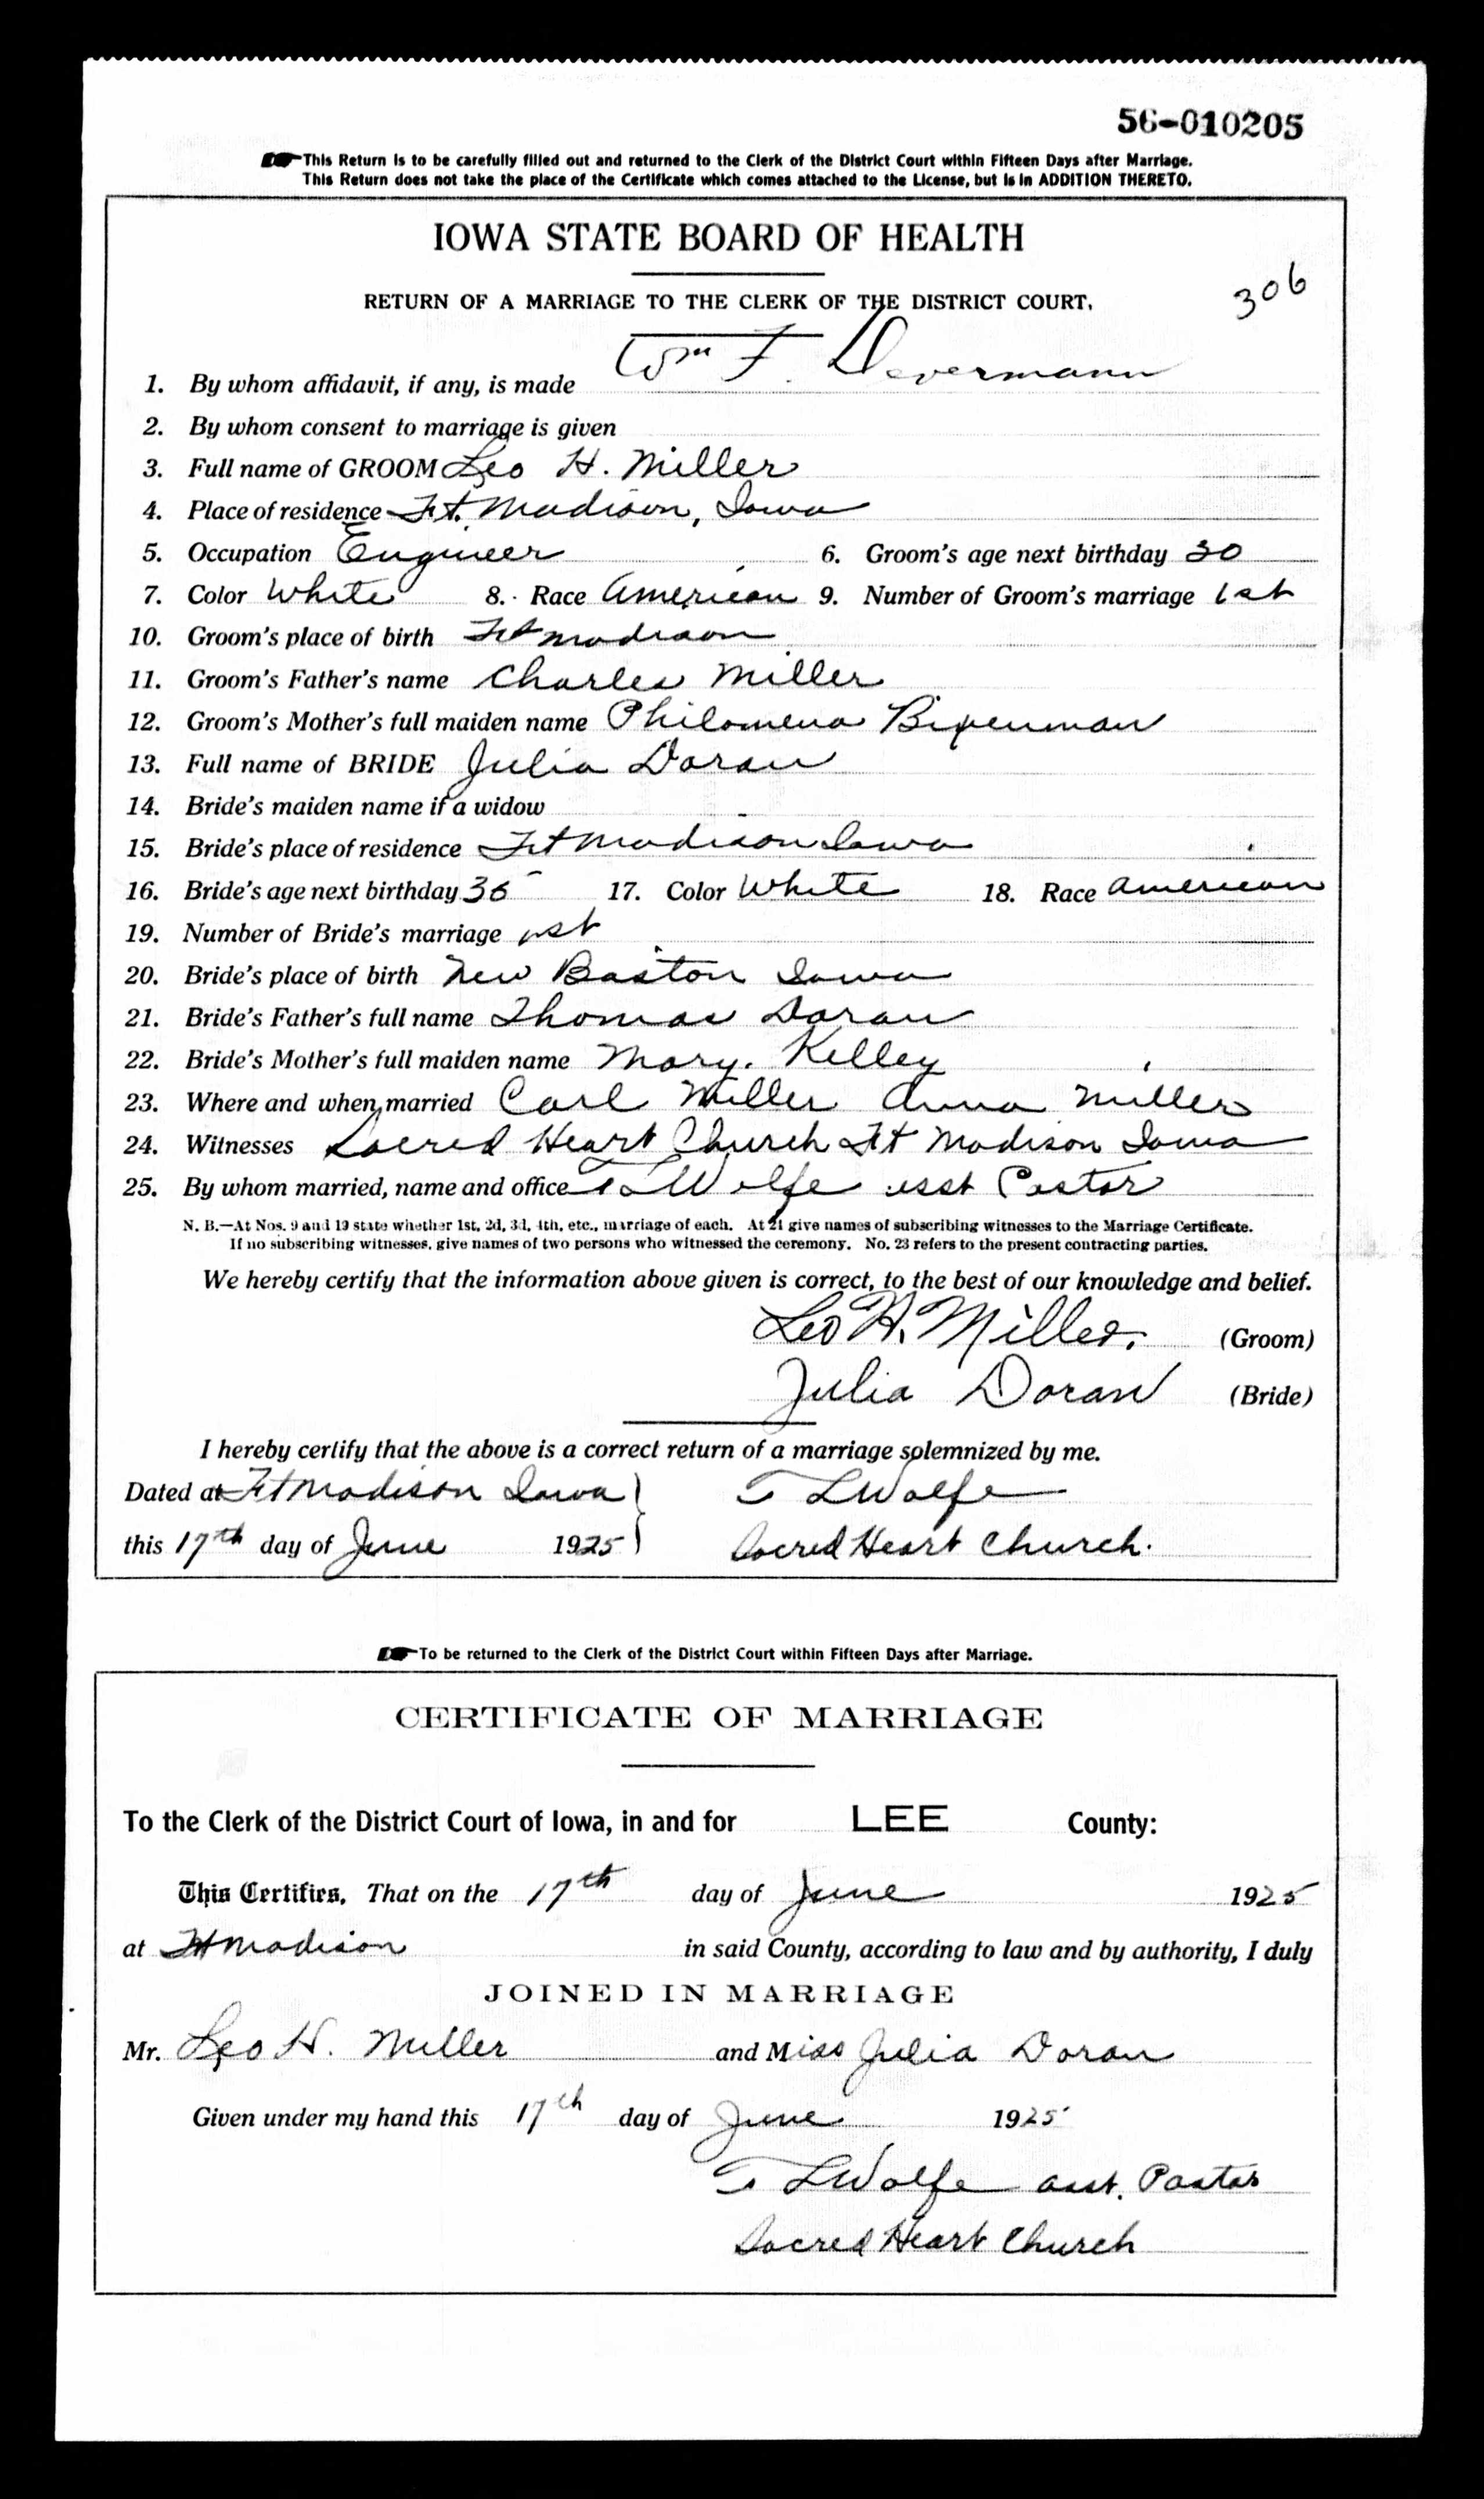 56-010205
This Return is to be carefully filled out and returned to the Clerk of the District Court within Fifteen Days after Marriage.
This Return does not take the place of the Certificate which comes attached to the License, but is in ADDITION THERETO.
IOWA STATE BOARD OF HEALTH
306
RETURN OF A MARRIAGE TO THE CLERK OF THE DISTRICT COURT.
1. By whom affidavit, if any, is made Wm F. Devermann
2. By whom consent to marriage is given
3. Full name of GROOM Leo H. Miller
4. Place of residence Ft. Madison, Iowa
5. Occupation Engineer 6. Groom's age next birthday 30
7. Color White 8. Race American 9. Number of Groom's marriage 1st
10. Groom's place of birth Ft Madison
11. Groom's Father's name Charles Miller
12. Groom's Mother's full maiden name Philomena
13. Full name of BRIDE Julia Doran
14. Bride's maiden name if a widow
15. Bride's place of residence Ft Madison Iowa
16. Bride's age next birthday 36 17. Color White 18. Race American
19. Number of Bride's marriage 1st
20. Bride's place of birth New Boston Iowa
21. Bride's Father's full name Thomas Doran
22. Bride's Mother's full maiden name Mary. Kelley
23. Where and when married Carl Miller Anna Miller
24. Witnesses Sacred Heart Church Ft Madison Iowa
25. By whom married, name and office T L Wolfe asst Pastor
N. B.—At Nos. 9 and 19 state whether 1st, 2d, 3d, 4th, etc., marriage of each. At 24 give names of subscribing witnesses to the Marriage Certificate.
If no subscribing witnesses, give names of two persons who witnessed the ceremony. No. 23 refers to the present contracting parties.
We hereby certify that the information above given is correct, to the best of our knowledge and belief.
Leo H. Miller. (Groom)
Julia Doran (Bride)
I hereby certify that the above is a correct return of a marriage solemnized by me.
Dated at Ft Madison Iowa T L Wolfe
this 17th day of June 1925 Sacred Heart Church.
To be returned to the Clerk of the District Court within Fifteen Days after Marriage.
CERTIFICATE OF MARRIAGE
To the Clerk of the District Court of Iowa, in and for LEE County:
This Certifies, That on the 17th day of June 1925
at Ft Madison in said County, according to law and by authority, I duly
JOINED IN MARRIAGE
Mr. Leo H. Miller and Miss Julia Doran
Given under my hand this 17th day of June 1925
T L Wolfe asst. Pastor
Sacred Heart Church